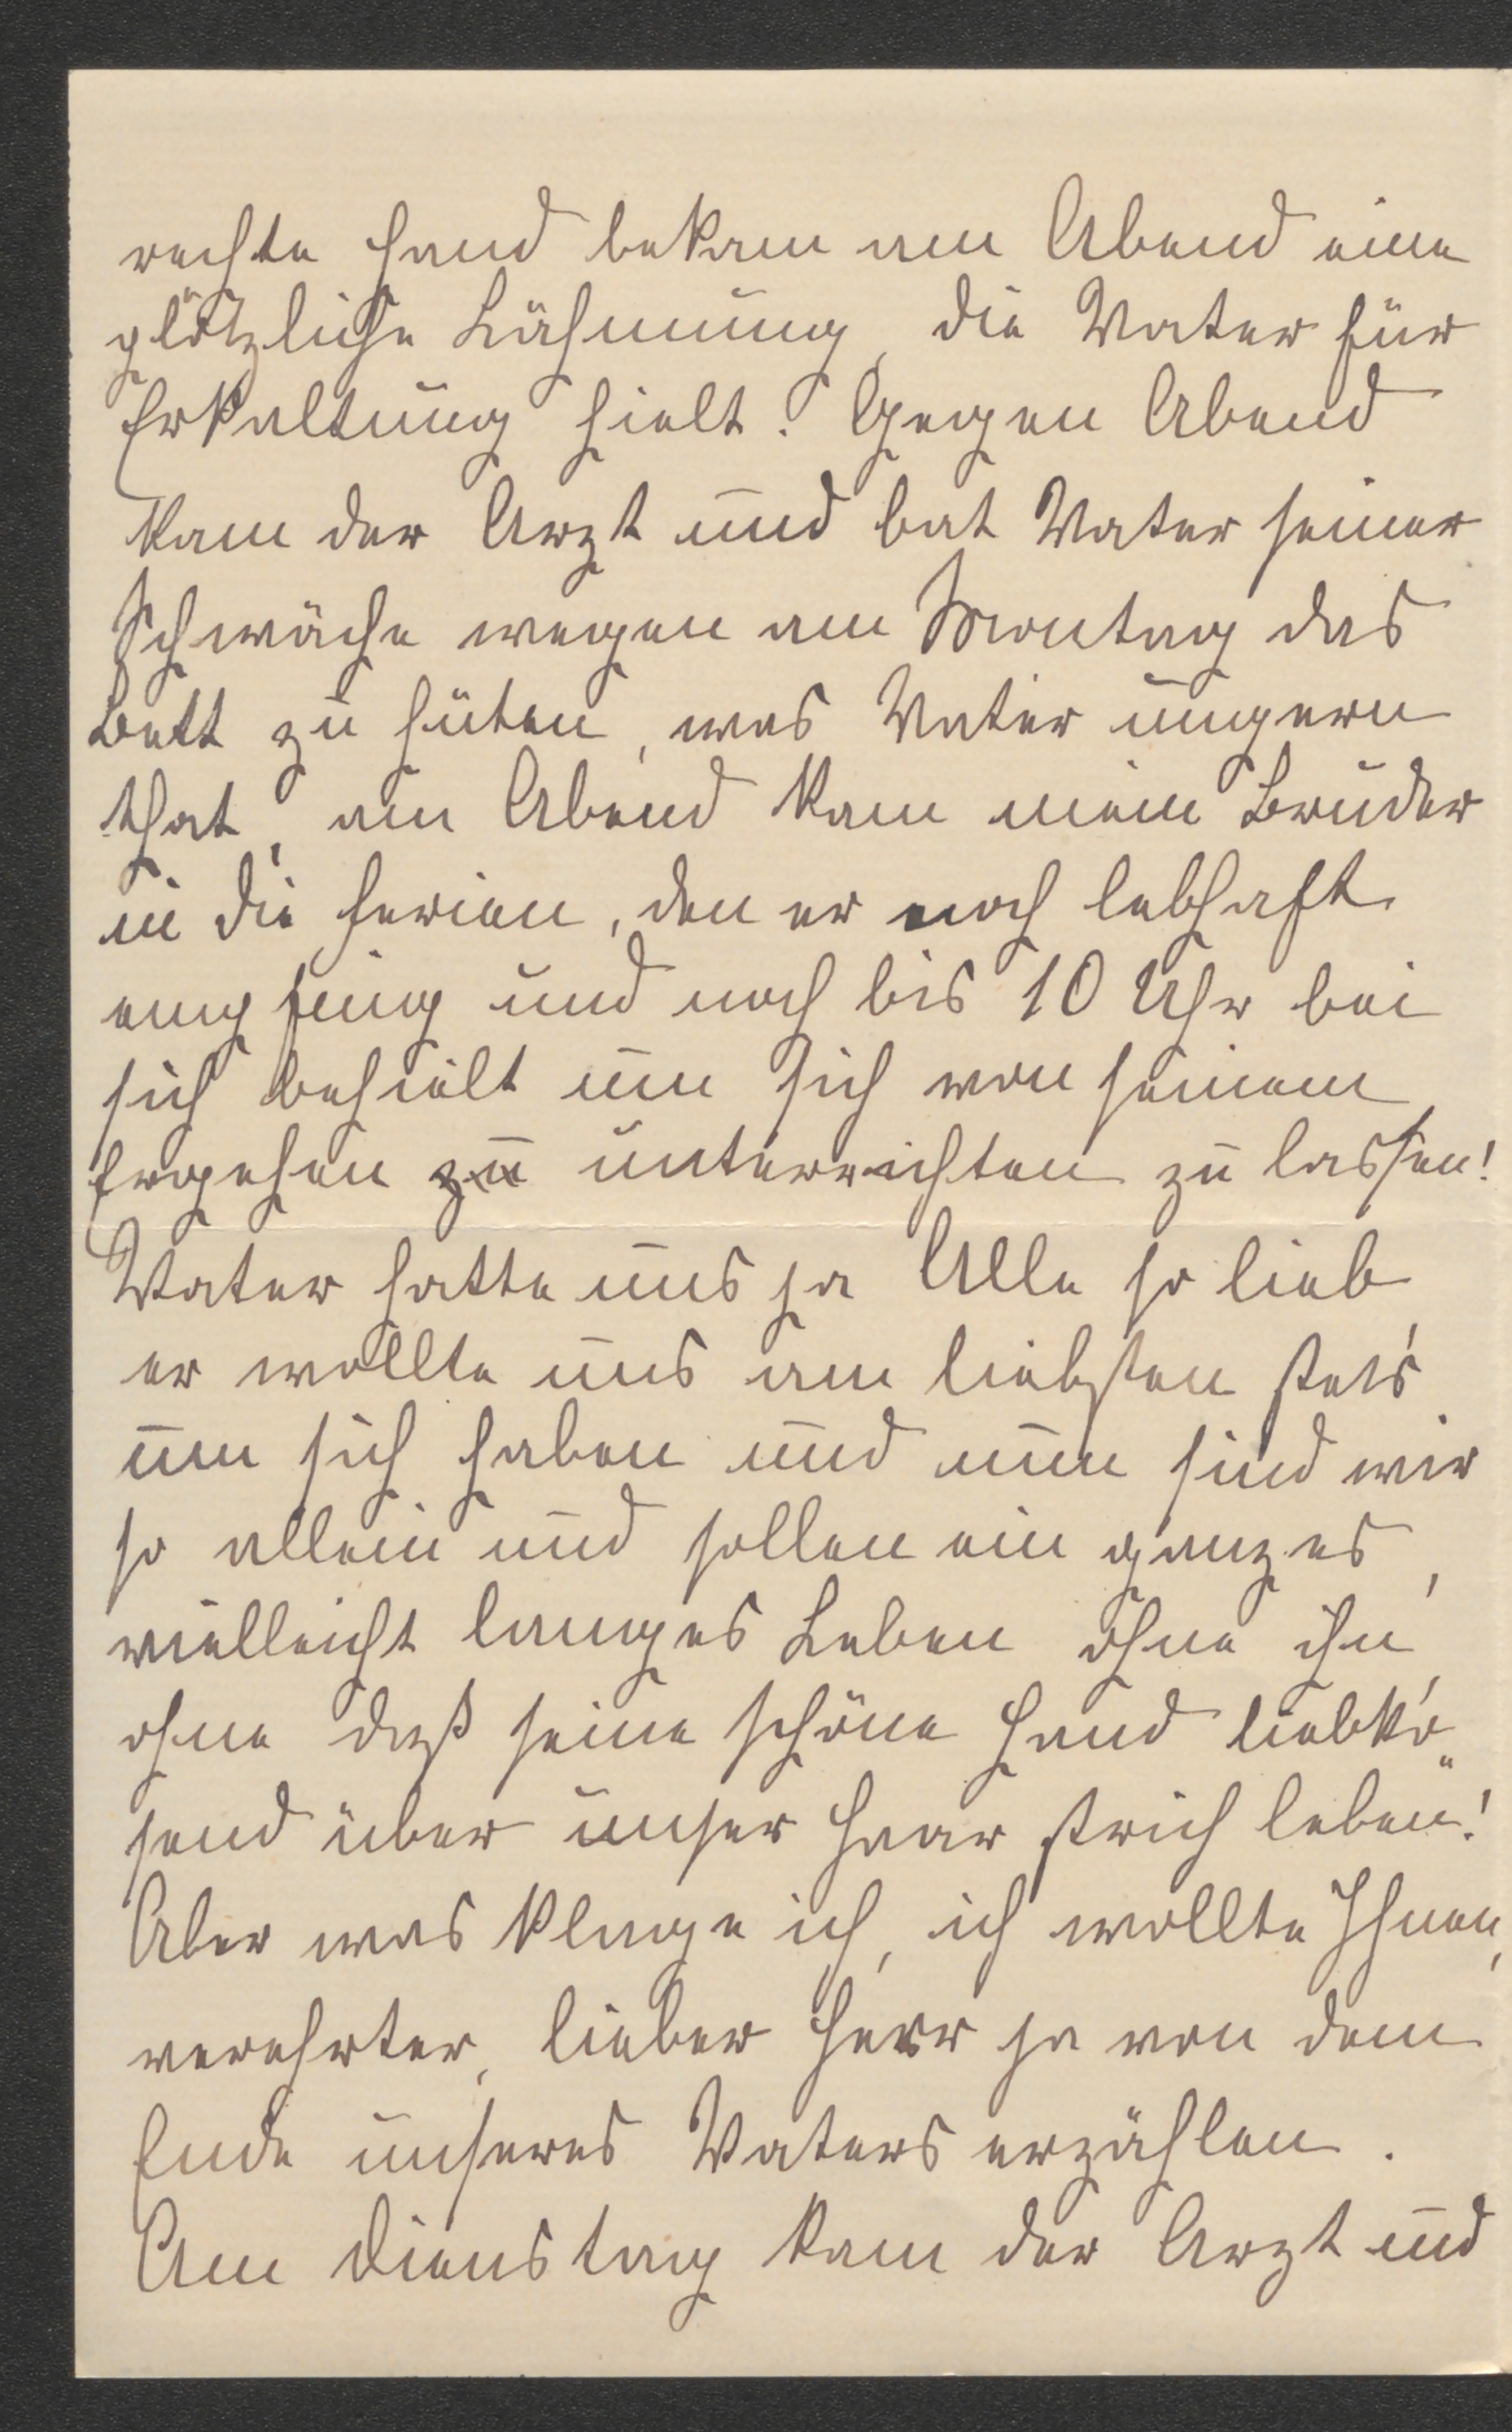 rechte Hand bekam am Abend eine
plötzliche Lähmung, die Vater für
Erkaltung hielt! Gegen Abend
kam der Arzt und bat Vater seiner
Schwäche wegen am Montag das
Bett zu hüten, was Vater ungern
that, am Abend kam mein Bruder
in die Ferien, den er noch lebhaft
empfing und noch bis 10 Uhr bei
sich behielt um sich von seinem
Ergehen zu unterrichten zu lassen!
Vater hatte uns ja Alle so lieb,
er wollte uns am liebsten stets
um sich haben und nun sind wir
so allein und sollen ein ganzes,
vielleicht langes Leben ohne ihn,
ohne daß seine schöne Hand liebko„
send über unser Haar strich leben!
Aber was klage ich, ich wollte Ihnen,
verehrter, lieber Herr ja von dem
Ende unseres Vaters erzählen.
Am Dienstag kam der Arzt und